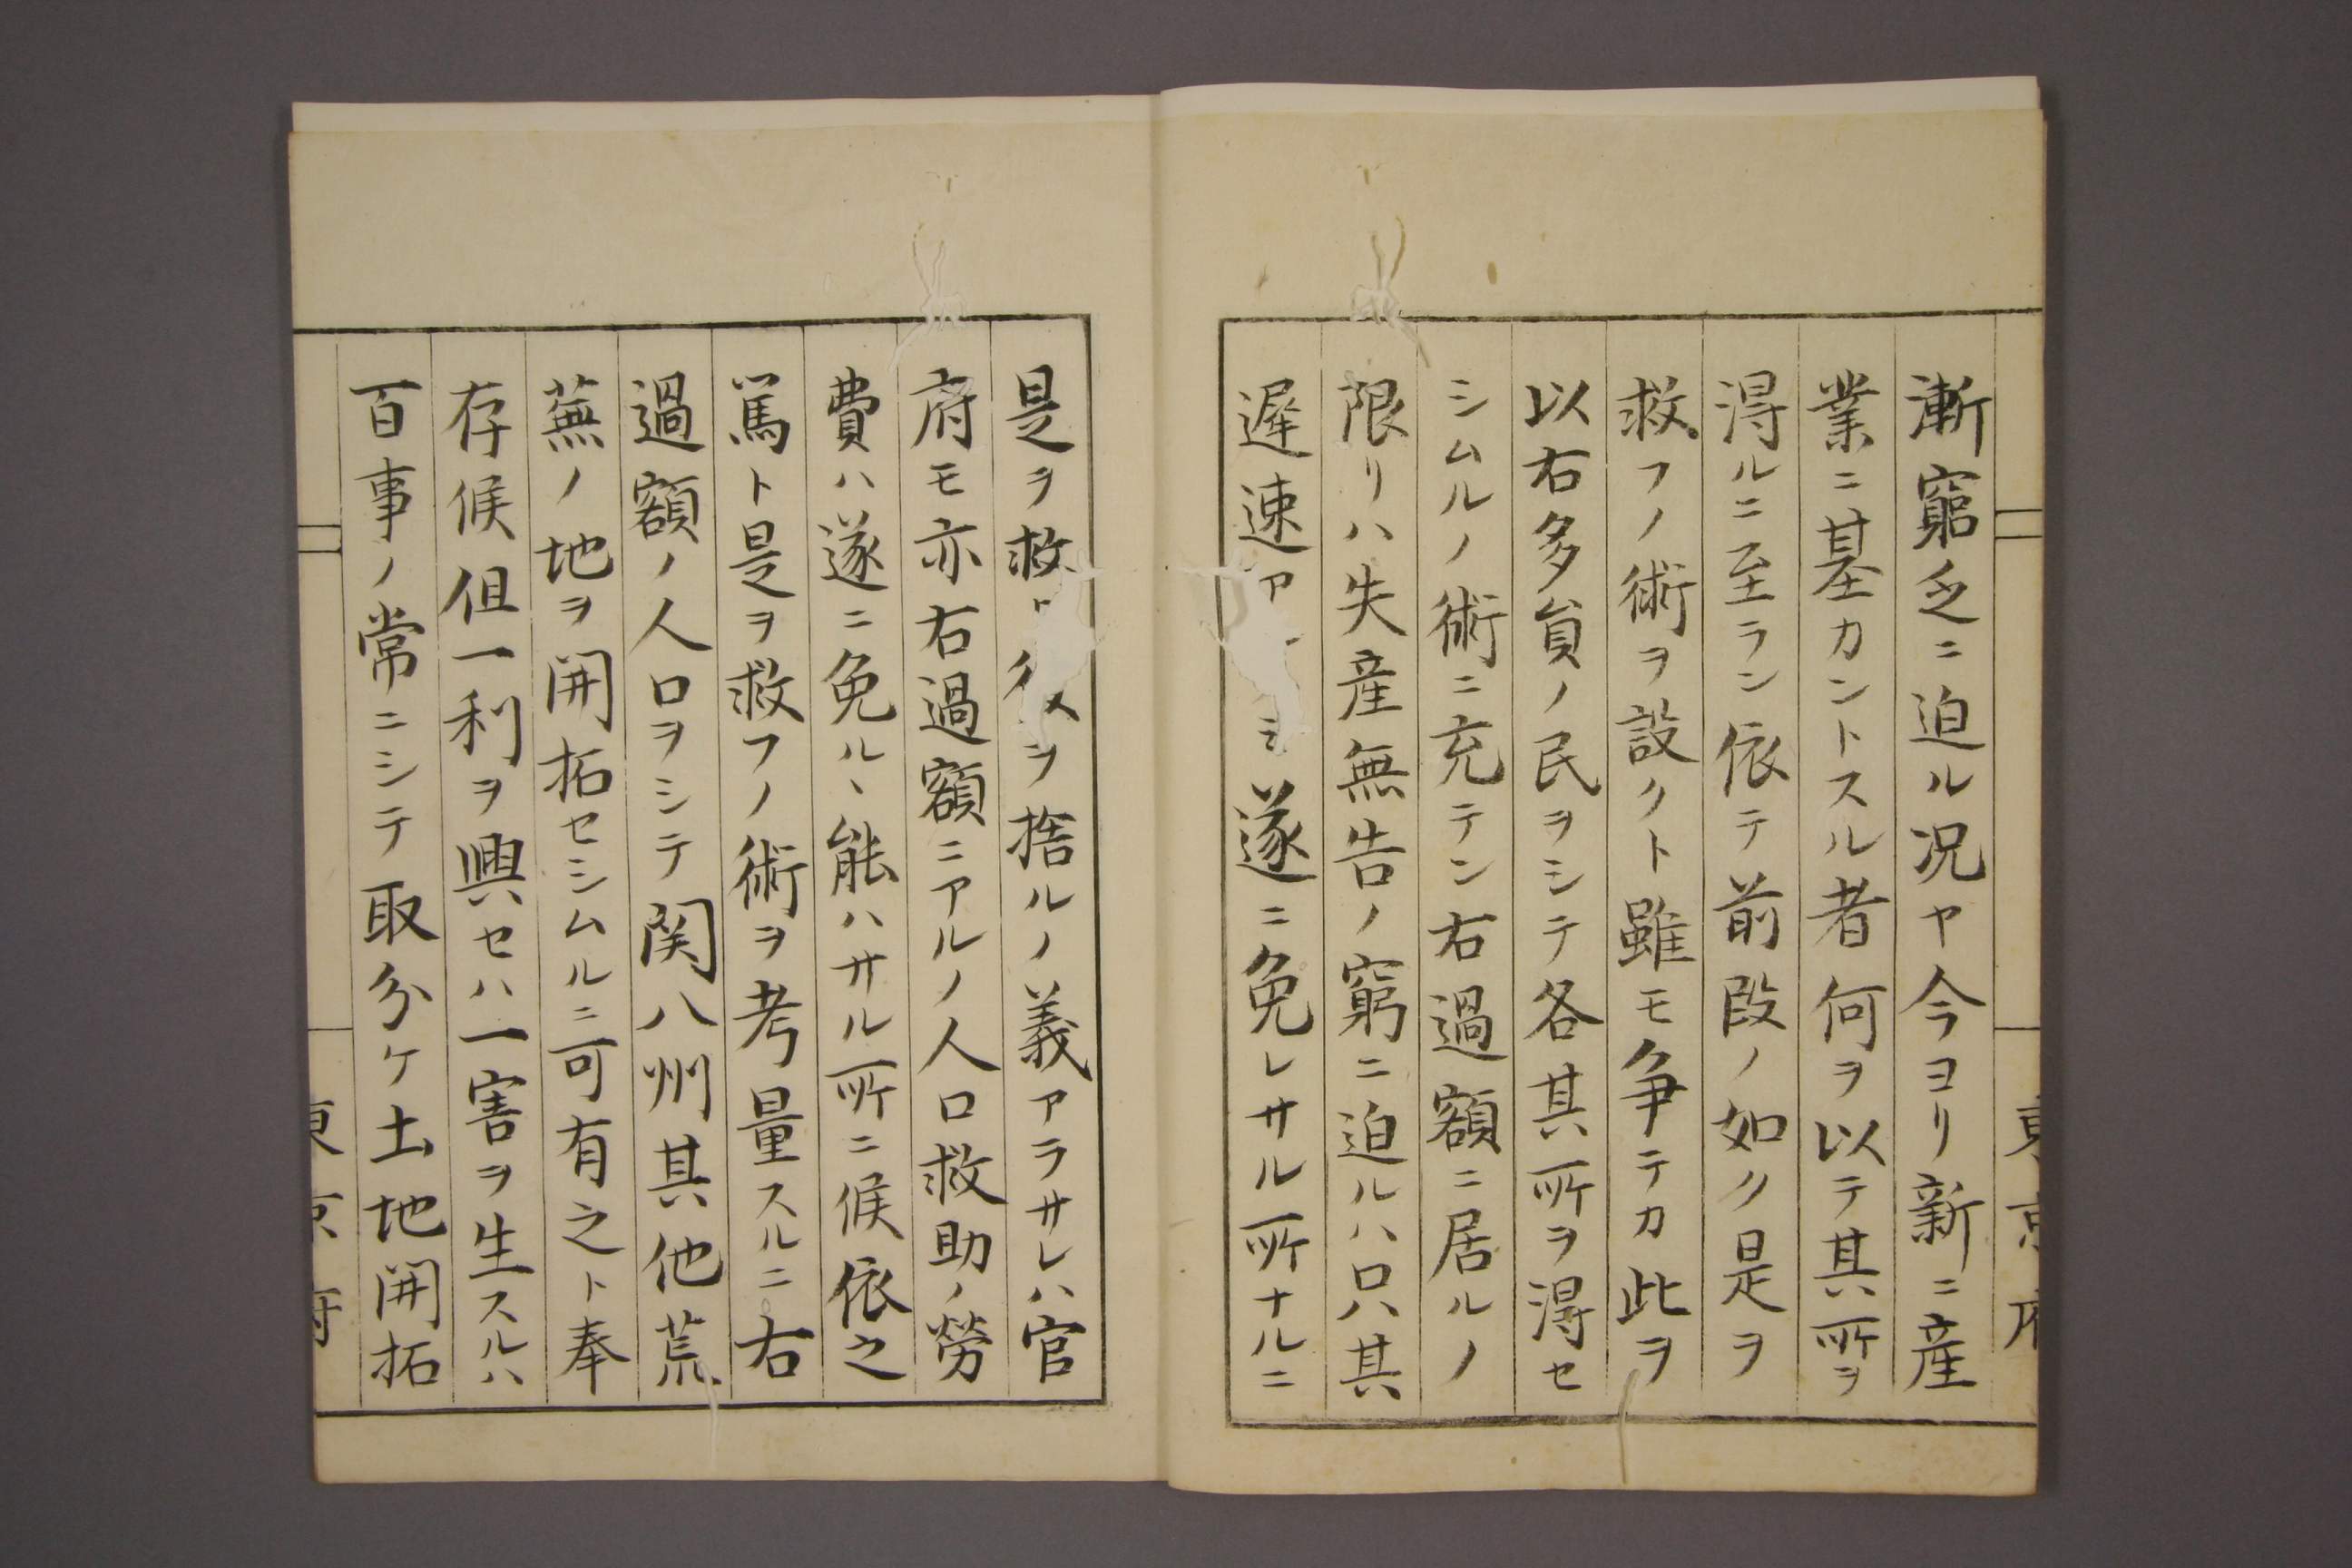 漸窮乏ニ迫ル况ヤ今ヨリ新ニ産
業ニ基カントスル者何ヲ以テ其所ヲ
得ルニ至ラン依テ前段ノ如ク是ヲ
救フノ術ヲ設クト雖モ争テカ此ヲ
以右多貟ノ民ヲシテ各其所ヲ得セ
シムルノ術ニ充テン右過額ニ居ルノ
限リハ失産無告ノ窮ニ迫ルハ只其
遅速ア ミ遂ニ免レサル所ナルニ
是ヲ救 彼ヲ捨ルノ義アラサレハ官
府モ亦右過額ニアルノ人口救助ノ勞
費ハ遂ニ免ルヽ能ハサル所ニ候依之
篤ト是ヲ救フノ術ヲ考量スルニ右
過額ノ人口ヲシテ関八州其他荒
蕪ノ地ヲ開拓セシムルニ可有之ト奉
存候但一利ヲ興セハ一害ヲ生スルハ
百事ノ常ニシテ取分ケ土地開拓
東京府